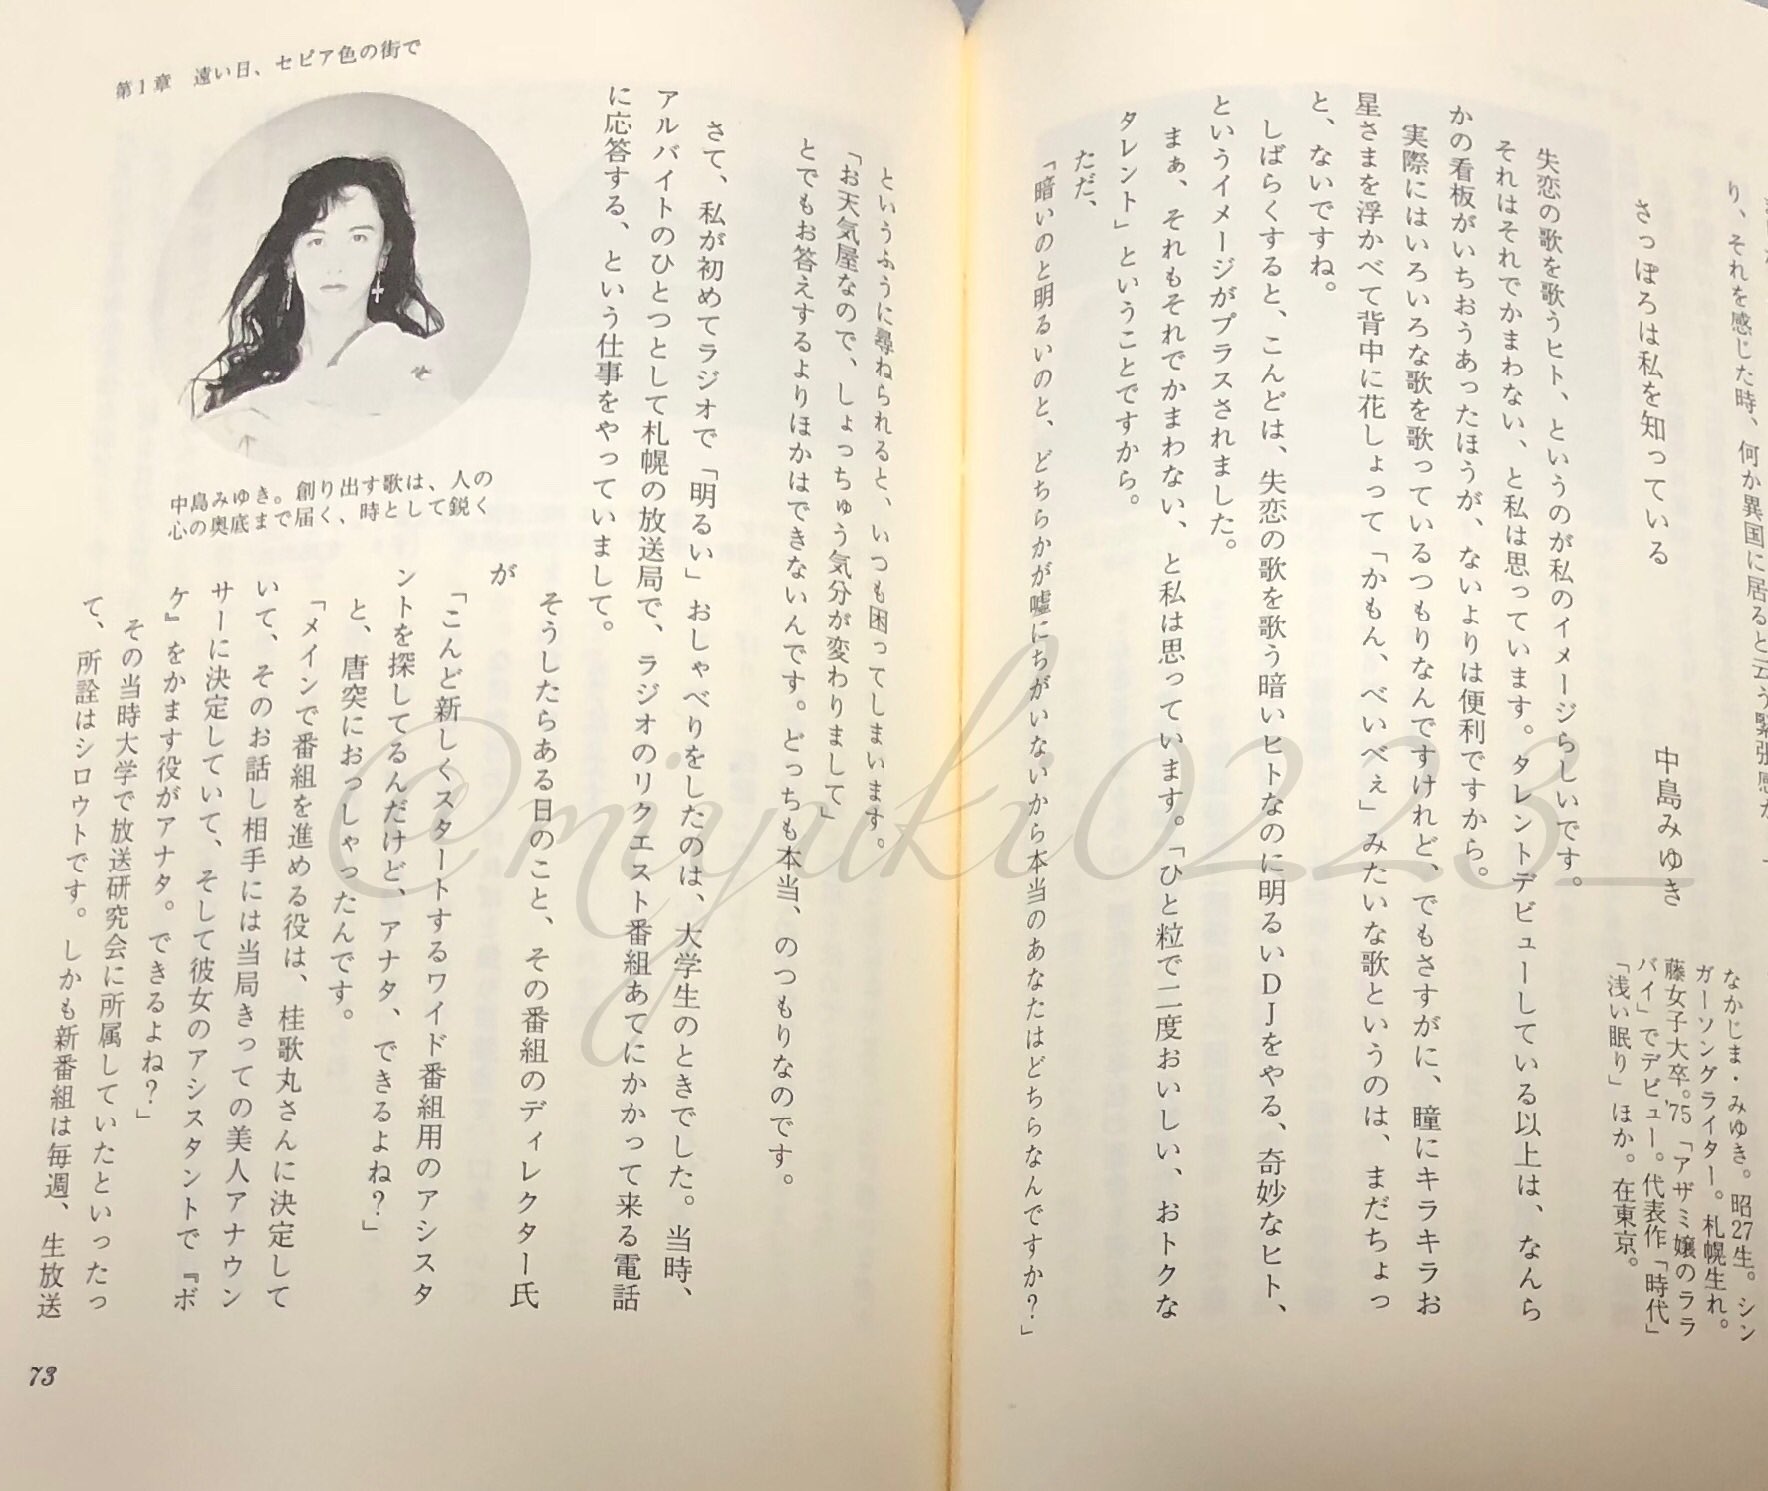 り、それを感じた時、何か異国に居ると云う緊張感が
さっぽろは私を知っている
中島みゆき
なかじま・みゆき。昭27生。シン
ガーソングライター。札幌生れ。
藤女子大卒。'75「アザミ嬢のララ
バイ」でデビュー。代表作「時代」
「浅い眠り」ほか。在東京。
失恋の歌を歌うヒト、というのが私のイメージらしいです。
それはそれでかまわない、と私は思っています。タレントデビューしている以上は、なんら
かの看板がいちおうあったほうが、ないよりは便利ですから。
実際にはいろいろな歌を歌っているつもりなんですけれど、でもさすがに、瞳にキラキラお
星さまを浮かべて背中に花しょって「かもん、べいべぇ」みたいな歌というのは、まだちょっ
と、ないですね。
しばらくすると、こんどは、失恋の歌を歌う暗いヒトなのに明るいDJをやる、奇妙なヒト、
というイメージがプラスされました。
まぁ、それもそれでかまわない、と私は思っています。「ひと粒で二度おいしい、おトクな
タレント」ということですから。
ただ、
「暗いのと明るいのと、どちらかが嘘にちがいないから本当のあなたはどちらなんですか?」
というふうに尋ねられると、いつも困ってしまいます。
「お天気屋なので、しょっちゅう気分が変わりまして」
とでもお答えするよりほかはできないんです。どっちも本当、のつもりなのです。
さて、私が初めてラジオで「明るい」おしゃべりをしたのは、大学生のときでした。当時、
アルバイトのひとつとして札幌の放送局で、ラジオのリクエスト番組あてにかかって来る電話
に応答する、という仕事をやっていまして。
そうしたらある日のこと、その番組のディレクター氏
が
「こんど新しくスタートするワイド番組用のアシスタ
ントを探してるんだけど、アナタ、できるよね?」
と、唐突におっしゃったんです。
「メインで番組を進める役は、桂歌丸さんに決定して
いて、そのお話し相手には当局きっての美人アナウン
サーに決定していて、そして彼女のアシスタントで『ボ
ケ』をかます役がアナタ。できるよね?」
その当時大学で放送研究会に所属していたといったっ
て、所詮はシロウトです。しかも新番組は毎週、生放送
第1章 遠い日、セピア色の街で
中島みゆき。創り出す歌は、人の
心の奥底まで届く、時として鋭く
73
@miyuki0223_